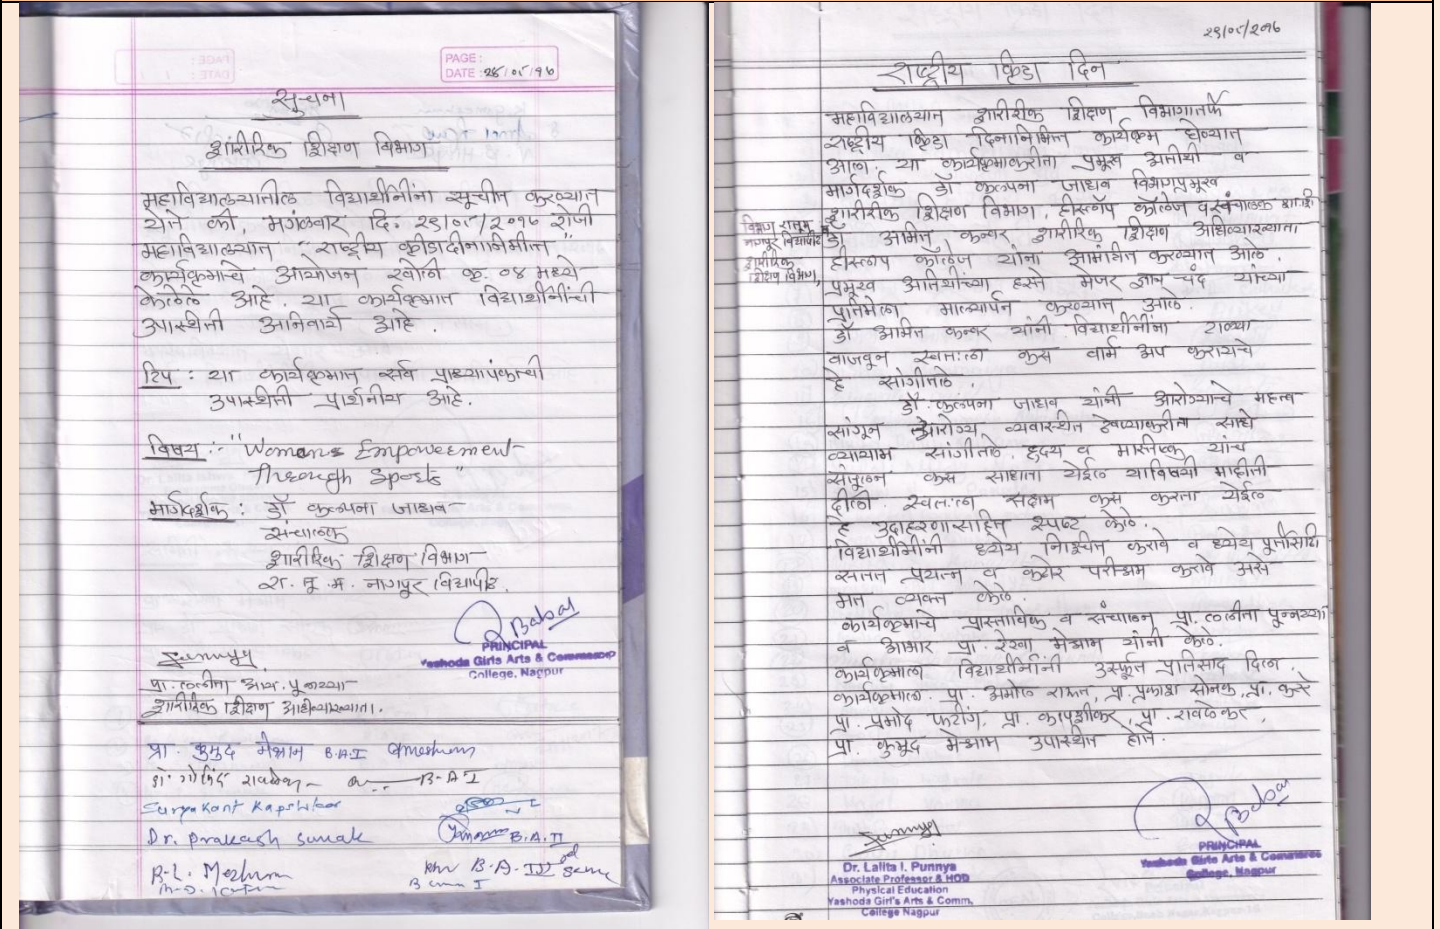 PAGE :
DATE : 28/08/१७
सुचना
शारीरिक शिक्षण विभाग
महाविद्यालयातील विद्यार्थीनींना सूचीत करण्यात
येते की, मगंळवार दि. २९/०८/२०१७ रोजी
महाविद्यालयात "राष्ट्रीय क्रीडादीनानिमीत्त"
कार्यक्रमाचे आयोजन खोली क्र. ०४ मध्ये
केलेले आहे. या कार्यक्रमात विद्यार्थीनींची
उपास्थिती अनिवार्य आहे.
टिप : या कार्यक्रमात सर्व प्राध्यापकांची
उपास्थिती प्रार्थनीय आहे.
विषय :- "Womans Empowerment
Through Sports"
मार्गदर्शक : डॉ कल्पना जाधव
संचालक
शारीरिक शिक्षण विभाग
रा. तू. म. नागपूर विद्यापीठ.
PRINCIPAL
Yashoda Girls Arts & Commerce
College, Nagpur
प्रा. ललीता आय. पून्नया
शारीरिक शिक्षण अधिव्याख्याता.
प्रा. कुमुद मेश्राम B.A.I
B.A I
Suryakant Kapshikar
Dr. Prakash Sonak B.A.II
R.L. Meshram B.A. III
२९/०८/२०१७
राष्ट्रीय क्रिडा दिन
महाविद्यालयात शारीरीक शिक्षण विभागातर्फे
राष्ट्रीय क्रिडा दिनानिमित्त कार्यक्रम घेण्यात
आला. या कार्यक्रमाकरीता प्रमुख अतीथी व
मार्गदर्शक डॉ कल्पना जाधव विभागप्रमुख
शारीरीक शिक्षण विभाग, हीस्लॉप कॉलेज व संचालक
नागपूर विद्यापीठ
शारीरिक
शिक्षण विभाग,
डॉ अमित कन्वर शारीरिक शिक्षण अधिव्याख्याता
हीस्लॉप कॉलेज यांना आमंत्रित करण्यात आले.
प्रमुख अतिथींच्या हस्ते मेजर ज्ञान चंद यांच्या
प्रतिमेला माल्यार्पन करण्यात आले.
डॉ अमित कन्वर यांनी विद्यार्थीनींना टाळ्या
वाजवून स्वतःला कस वार्म अप करायचे
हे सांगीतले.
डॉ. कल्पना जाधव यांनी आरोग्याचे महत्व
सांगून आरोग्य व्यवास्थित ठेवण्याकरीता साधे
व्यायाम सांगीतले. हृदय व मास्तिष्क यांच
संतूलन कस साधता येईल याविषयी माहीती
दीली. स्वतःला सक्षम कस करता येईल
हे उदाहरणासहित स्पष्ट केले.
विद्यार्थीनींनी ध्येय निश्चित करावे व ध्येय पूर्तीसाठी
सतत प्रयत्न व कठोर परीश्रम करावे असे
मत व्यक्त केले.
कार्यक्रमाचे प्रास्ताविक व संचालन प्रा. ललीता पून्नया
व आभार प्रा. रेखा मेश्राम यांनी केले.
कार्यक्रमाला विद्यार्थीनींनी उस्फूर्त प्रतिसाद दिला.
कार्यक्रमाला प्रा. अमोल राऊत, प्रा. प्रकाश सोनक, प्रा.
प्रा. प्रमोद फटींग, प्रा. कापशीकर, प्रा. रावळेकर,
प्रा. कुमूद मेश्राम उपास्थित होते.
Dr. Lalita I. Punnya
Associate Professor & HOD
Physical Education
Yashoda Girl's Arts & Comm.
College Nagpur
PRINCIPAL
Yashoda Girls Arts & Commerce
College, Nagpur